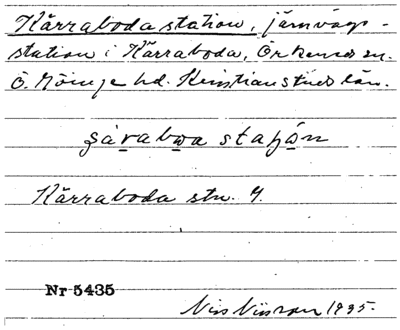 Kärraboda station, järnvägs-
station i Kärraboda, Örkeneds sn.
Ö. Göinge hd. Kristianstads län.
stn. 4.
Kärraboda
Nr 5435
Nils Nilsson 1935.